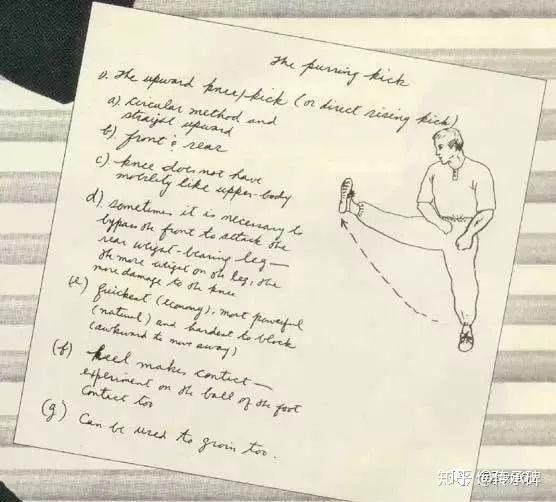 The purring kick
1. The upward knee/kick (or direct rising kick)
a). circular method and
straight upward
b) front & rear
c) knee does not have
mobility like upper-body
d). sometimes it is necessary to
bypass the front to attack the
rear weight-bearing leg —
the more weight on the leg, the
more damage to the knee
(e) quickest (economy), most powerful
(natural) and hardest to block
(awkward to move away)
(f) heel makes contact —
experiment on the ball of the foot
contact too
(g) Can be used to groin too.
知乎 @蒋承碑